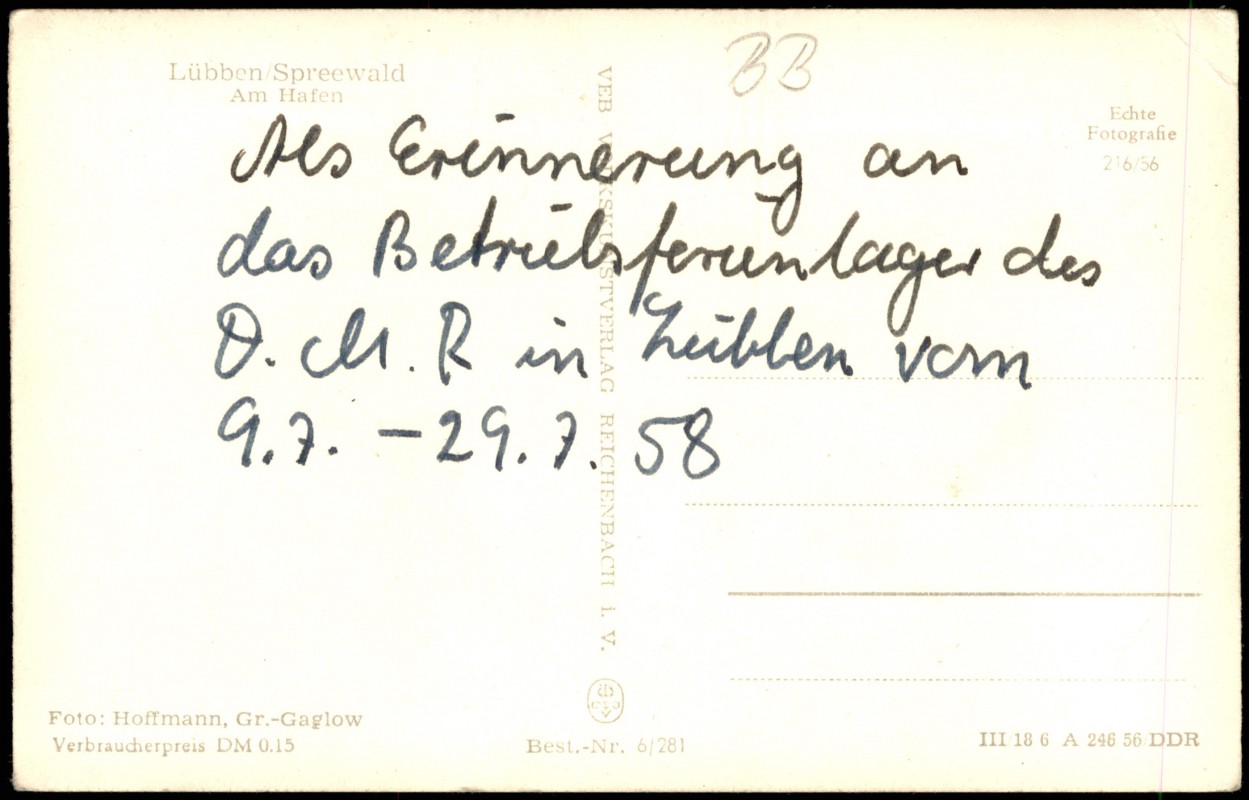 BB
Lübben/Spreewald
Am Hafen
Echte
Fotografie
216/56
Als Erinnerung an
das Betriebsferienlager des
O. M. R in Lübben vom
9.7. – 29.7. 58
VEB VOLKSKUNSTVERLAG REICHENBACH i. V.
Foto: Hoffmann, Gr.-Gaglow
Verbraucherpreis DM 0.15
Best.-Nr. 6/281
III 18 6 A 246 56 DDR